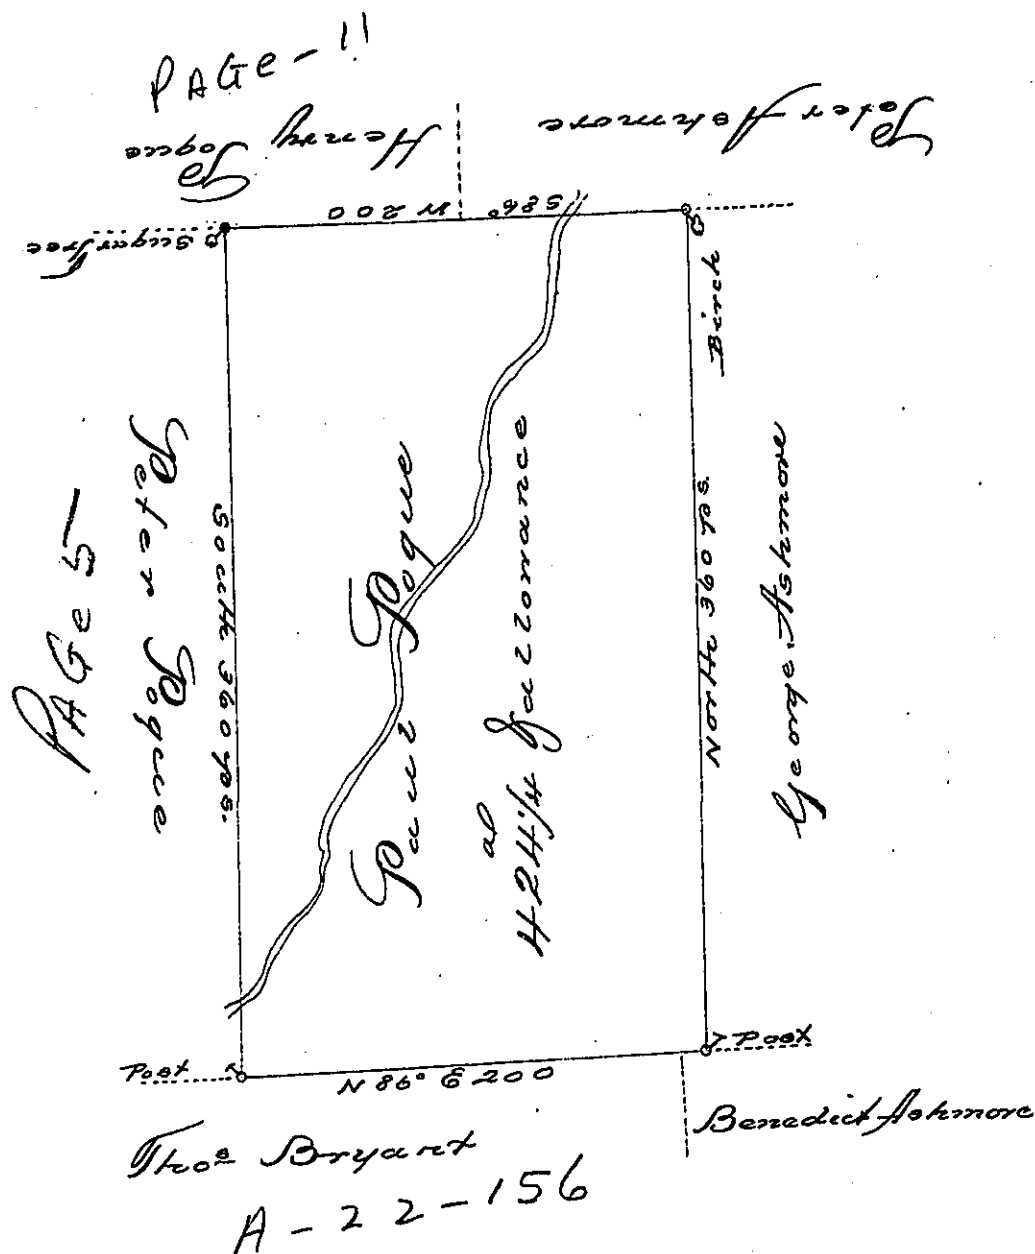 PAGe - 11
Henry Pogue
Peter Ashmore
Sugar Tree
S 86° W 200
Birch
PAGe 5
Peter Pogue
South 360 ps.
Paul Pogue
424 1/4 a & allowance
North 360 ps.
George Ashmore
Post
N 86° E 200
Post
Thos Bryant
Benedict Ashmore
A - 22 - 156